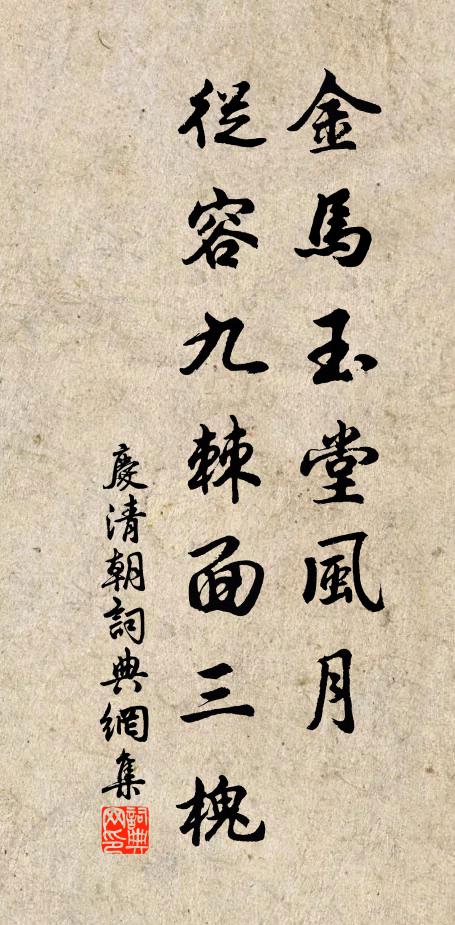 金馬玉堂風月
從容九棘面三槐
慶清朝詞典網集
詞典网印